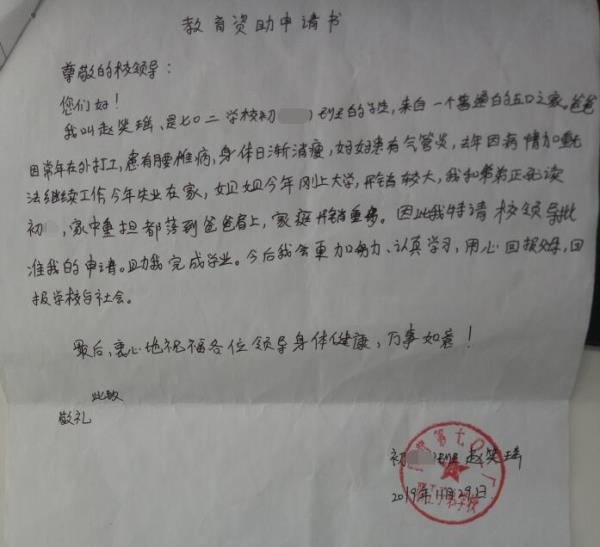 教育资助申请书
尊敬的校领导：
您们好！
我叫赵笑瑶、是七〇二学校初 班的学生，来自一个普通的五口之家。爸爸
因常年在外打工，患有腰椎病，身体日渐消瘦，妈妈患有气管炎，去年因病情加重无
法继续工作今年失业在家，姐姐今年刚上大学，开销较大，我和弟弟正就读
初 ，家中重担都落到爸爸肩上，家庭开销重多。因此我特请校领导批
准我的申请。助我完成学业。今后我会更加努力、认真学习，用心回报父母，回
报学校与社会。
最后，衷心地祝福各位领导身体健康，万事如意！
此致
敬礼
初 班 赵笑瑶
2019年11月29日
第七〇二厂
学校